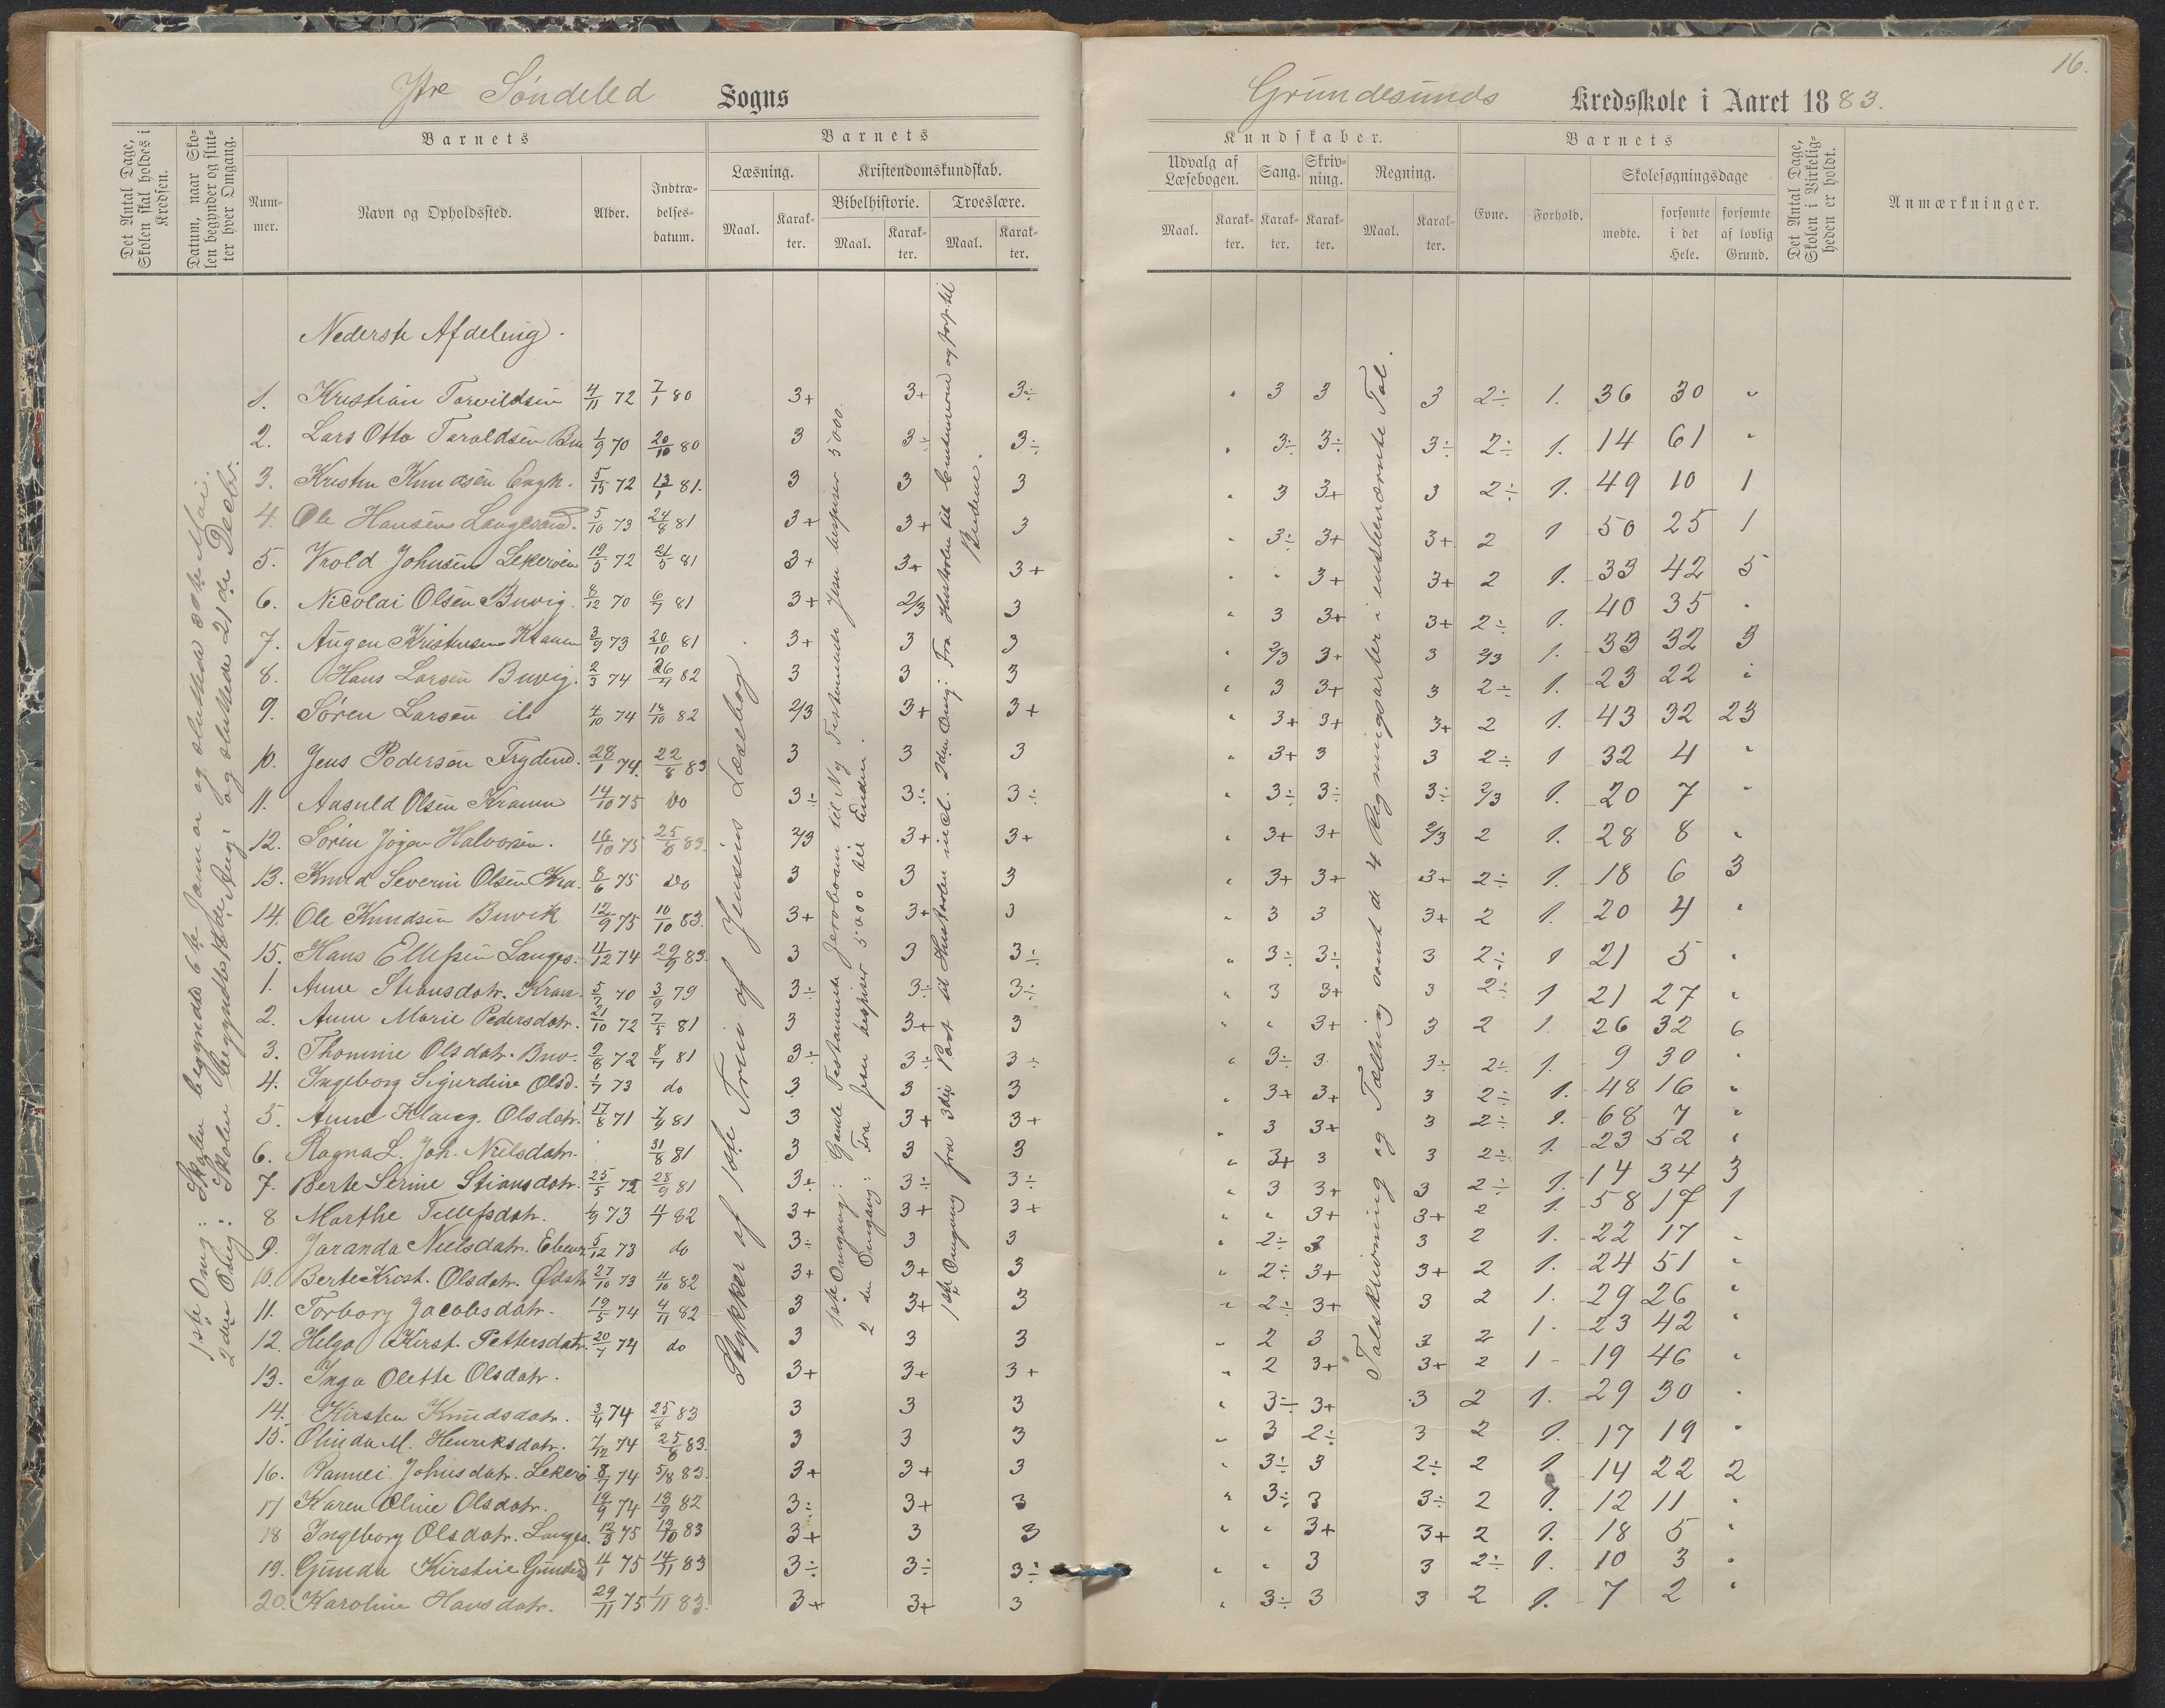 16.
Ytre Søndeled Sogns
Grundesunds Kredsskole i Aaret 1883.
Det Antal Dage, Skolen skal holdes i Kredsen.
Datum, naar Skolen begynder og slutter hver Omgang.
Barnets
Nummer.
Navn og Opholdssted.
Alder.
Indtrædelsesdatum.
Barnets
Læsning.
Maal.
Karakter.
Kristendomskundskab.
Bibelhistorie.
Maal.
Karakter.
Troeslære.
Maal.
Karakter.
Kundskaber.
Udvalg af Læsebogen.
Maal.
Karakter.
Sang.
Karakter.
Skrivning.
Karakter.
Regning.
Maal.
Karakter.
Barnets
Evne.
Forhold.
Skolesøgningsdage
mødte.
forsømte i det Hele.
forsømte af lovlig Grund.
Det Antal Dage, Skolen i Virkeligheden er holdt.
Anmærkninger.
1ste Omg: Skolen begyndte 6te Januar og sluttede 30te Mai.
og sluttede 21de Decbr.
Stykker af 1ste Trin af Jensens Læsebog.
1ste Omgang: Gamle Testamente Jeroboam til Ny Testamente Jesu bespiser 5000.
2den Omgang: Fra Jesu bespiser 5000 til Enden.
1ste Omgang fra 3die Part til Hustavlen incl. 2den Omg: Fra Hustavlen til
Talskrivning og Tælling samt de 4 Regningsarter i ensbenævnte Tal.
Nederste Afdeling.
1. Kristian Torvildsen 4/11 72 7/1 80 3+ 3+ 3÷ " 3 3 3 2÷ 1. 36 30 "
2. Lars Otto Taraldsen 1/9 70 20/10 80 3 3÷ 3÷ " 3÷ 3÷ 3÷ 2÷ 1. 14 61 "
3. Kristen Knudsen 5/15 72 13/1 81. 3 3 3 " 3 3+ 3 2÷ 1. 49 10 1
4. Ole Hansen Langesand. 5/10 73 24/8 81 3+ 3+ 3 " 3÷ 3+ 3+ 2 1 50 25 1
5. Vrold Johnsen Lekerøen 19/5 72 21/5 81 3+ 3+ 3+ " " 3+ 3+ 2 1. 33 42 5
6. Nicolai Olsen Buvig. 8/12 70 6/7 81 3+ 2/3 3 " 3 3+ 3+ 2÷ 1. 40 35 "
7. Augen Kristensen 3/9 73 20/10 81 3+ 3 3 " 2/3 3+ 3 2/3 1. 33 32 3
8. Hans Larsen Buvig. 2/3 74 82 3 3 3 " 3 3+ 3 2÷ 1. 23 22 "
9. Søren Larsen 4/10 74 18/10 82 2/3 3+ 3+ " 3+ 3+ 3+ 2 1. 43 32 23
10. Jens Pedersen Frydend. 28/1 74. 22/8 83 3 3 3 " 3+ 3 3 2÷ 1 32 4 "
11. Aasuld Olsen 14/10 75 Do 3÷ 3÷ 3÷ " 3÷ 3÷ 3÷ 2/3 1. 20 7 "
12. Søren Jøgen Halvorsen. 16/10 75 25/8 83. 2/3 3+ 3+ " 3+ 3+ 2/3 2 1. 28 8 "
13. Knud Severin Olsen Kra. 8/6 75 Do 3 3 3 " 3+ 3+ 3+ 2÷ 1. 18 6 3
14. Ole Knudsen Buvik 12/9 75 10/10 83. 3+ 3+ 3 " 3 3 3+ 2 1. 20 4 "
15. Hans Ellefsen Langes. 4/12 74 29/9 83. 3 3 3÷ " 3÷ 3÷ 3 2÷ 1 21 5 "
1. Anne Stiansdatr. 5/7 70 3/9 79 3÷ 3÷ 3÷ " 3 3+ 3 2÷ 1 21 27 "
2. Anne Marie Pedersdatr. 21/10 72 7/5 81 3 3+ 3 " " 3+ 3 2 1. 26 32 6
3. Thomine Olsdatr. Buv. 9/8 72 8/7 81 3÷ 3÷ 3÷ " 3÷ 3 3÷ 2÷ 1. 9 30 "
4. Ingeborg Sigurdine Olsd. 1/7 73 do 3 3 3 " 3+ 3+ 3 2÷ 1. 48 16 "
5. Anne Olsdatr. 17/8 71 81 3 3+ 3+ " 3 3+ 3 2÷ 1. 68 7 "
6. Ragna L. Joh. Nielsdatr. 31/8 81 3 3 3 " 3+ 3 3 2÷ 1. 23 52 "
7. Berte Serine Stiansdatr. 25/5 72 28/9 81 3÷ 3÷ 3÷ " 3 3+ 3 2÷ 1. 14 34 3
8 Marthe Tellefsdatr. 73 82 3+ 3+ 3+ " " 3+ 3+ 2 1. 58 17 1
9. Jaranda Nielsdatr. 5/12 73 do 3÷ 3 3 " 2÷ 3 3 2 1. 22 17 "
10. Berte Krist. Olsdatr. 27/10 73 4/10 82 3+ 3+ 3 " 2÷ 3+ 3+ 2 1. 24 51 "
11. Torborg Jacobsdatr. 19/5 74 4/11 82 3 3+ 3 " 2÷ 3+ 3 2 1. 29 26 "
12. Helga Kirst. Pettersdatr. 20/7 74 do 3 3 3 " 2 3 3 2 1. 23 42 "
13. Inga Olette Olsdatr. 3+ 3+ 3+ " 2 3+ 3+ 2 1 19 46 "
14. Kirsten Knudsdatr. 3/4 74 25/8 83 3 3 3 " 3÷ 3+ 3 2 1. 29 30 "
15. Olinda M. Henriksdatr. 7/12 74 25/8 83. 3 3 3 " 3 2÷ 3 2 1. 17 19 "
16. Rannei Johnsdatr. Lekerø 8/7 74 5/8 83. 3+ 3+ 3 " 3÷ 3 2÷ 2 1 14 22 2
17 Karen Oline Olsdatr. 19/9 74 13/9 82 3÷ 3+ 3 " 3÷ 3 3÷ 2 1. 12 11 "
18 Ingeborg Olsdatr. Langes. 12/3 75 13/10 83 3+ 3 3 " " 3+ 3+ 2 1. 18 5 "
19. Gunda Kirstine 4/1 75 14/11 83 3÷ 3÷ 3÷ " " 3 3 2÷ 1. 10 3 "
20. Karoline Hansdatr. 29/11 75 1/11 83. 3+ 3+ 3 " 3÷ 3 3 2 1. 7 2 "